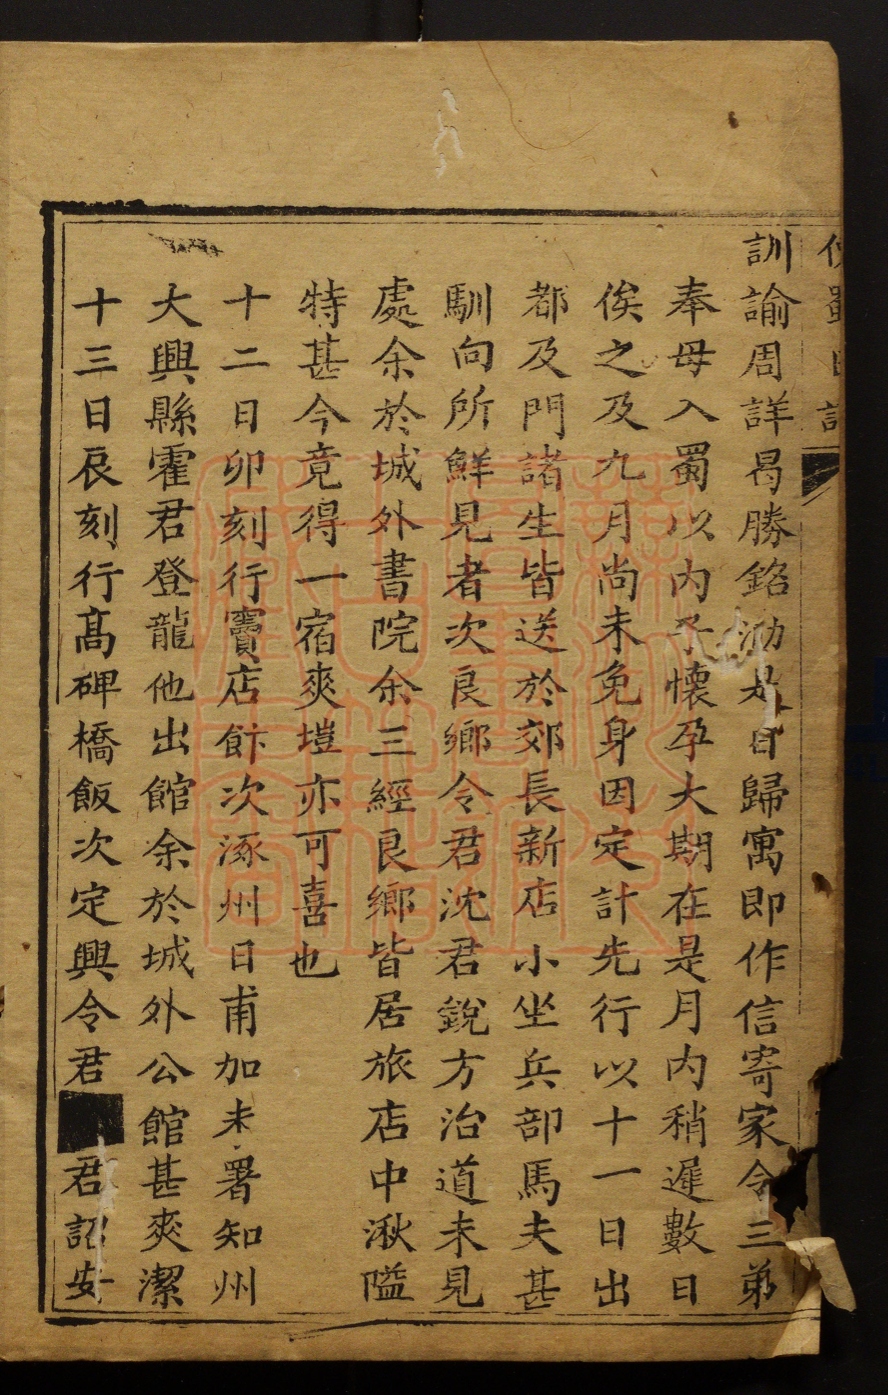 使蜀日記
訓諭周詳曷勝銘泐是日歸寓即作信寄家令三弟
奉母入蜀以內子懷孕大期在是月內稍遲數日
俟之及九月尚未免身因定計先行以十一日出
都及門諸生皆送於郊長新店小坐兵部馬夫甚
馴向所鮮見者次良鄉令君沈君銳方治道未見
處余於城外書院余三經良鄉皆居旅店中湫隘
特甚今竟得一宿爽塏亦可喜也
十二日卯刻行竇店飰次涿州日甫加未署知州
大興縣霍君登龍他出館余於城外公館甚爽潔
十三日辰刻行髙碑橋飯次定興令君■君詔安